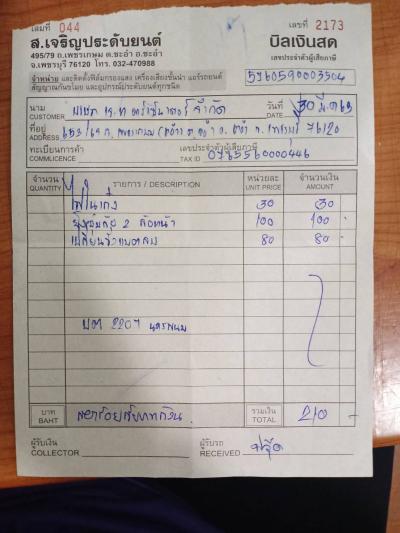 เล่มที่ 044
เลขที่ 2173
ส.เจริญประดับยนต์
บิลเงินสด
495/79 ถ.เพชรเกษม ต.ชะอำ อ.ชะอำ
จ.เพชรบุรี 76120 โทร. 032-470988
เลขประจำตัวผู้เสียภาษี
จำหน่าย และติดตั้งฟิล์มกรองแสง เครื่องเสียงชั้นนำ แอร์รถยนต์
สัญญาณกันขโมย และอุปกรณ์ประดับยนต์ทุกชนิด
5760590003504
นาม
CUSTOMER
จำกัด
วันที่ 30 มี.ค 63
DATE
ที่อยู่
ADDRESS
76120
ทะเบียนการค้า
COMM.LICENCE
เลขประจำตัวผู้เสียภาษี
TAX ID 0765560000446
จำนวน QUANTITY
รายการ / DESCRIPTION
หน่วยละ UNIT PRICE
จำนวนเงิน AMOUNT
ไฟในเก๋ง 30 30
2 ล้อหน้า 100 100
เปลี่ยนขั้วแบตลบ 80 80
บต 2207 นครพนม
บาท BAHT
สองร้อยสิบบาทถ้วน
รวมเงิน TOTAL 210
ผู้รับเงิน
COLLECTOR
ผู้รับรถ
RECEIVED